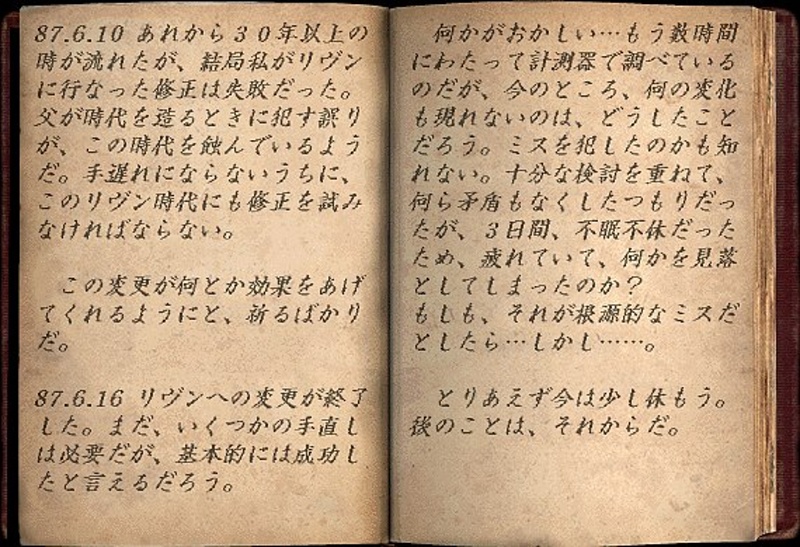 87.6.10 あれから３０年以上の
時が流れたが、結局私がリヴン
に行なった修正は失敗だった。
父が時代を造るときに犯す誤り
が、この時代を蝕んでいるよう
だ。手遅れにならないうちに、
このリヴン時代にも修正を試み
なければならない。
この変更が何とか効果をあげ
てくれるようにと、祈るばかり
だ。
87.6.16 リヴンへの変更が終了
した。まだ、いくつかの手直し
は必要だが、基本的には成功し
たと言えるだろう。
何かがおかしい…もう数時間
にわたって計測器で調べている
のだが、今のところ、何の変化
も現れないのは、どうしたこと
だろう。ミスを犯したのかも知
れない。十分な検討を重ねて、
何ら矛盾もなくしたつもりだっ
たが、３日間、不眠不休だった
ため、疲れていて、何かを見落
としてしまったのか？
もしも、それが根源的なミスだ
としたら…しかし……。
とりあえず今は少し休もう。
後のことは、それからだ。